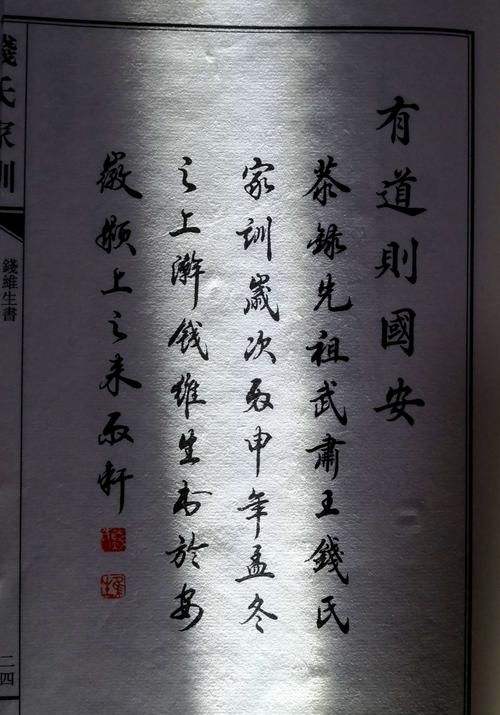 有道則國安
恭錄先祖武肅王錢氏
家訓歲次申年孟冬
之上澣錢維生書於安
徽潁上之來雨軒
錢氏家訓
錢維生書
二四